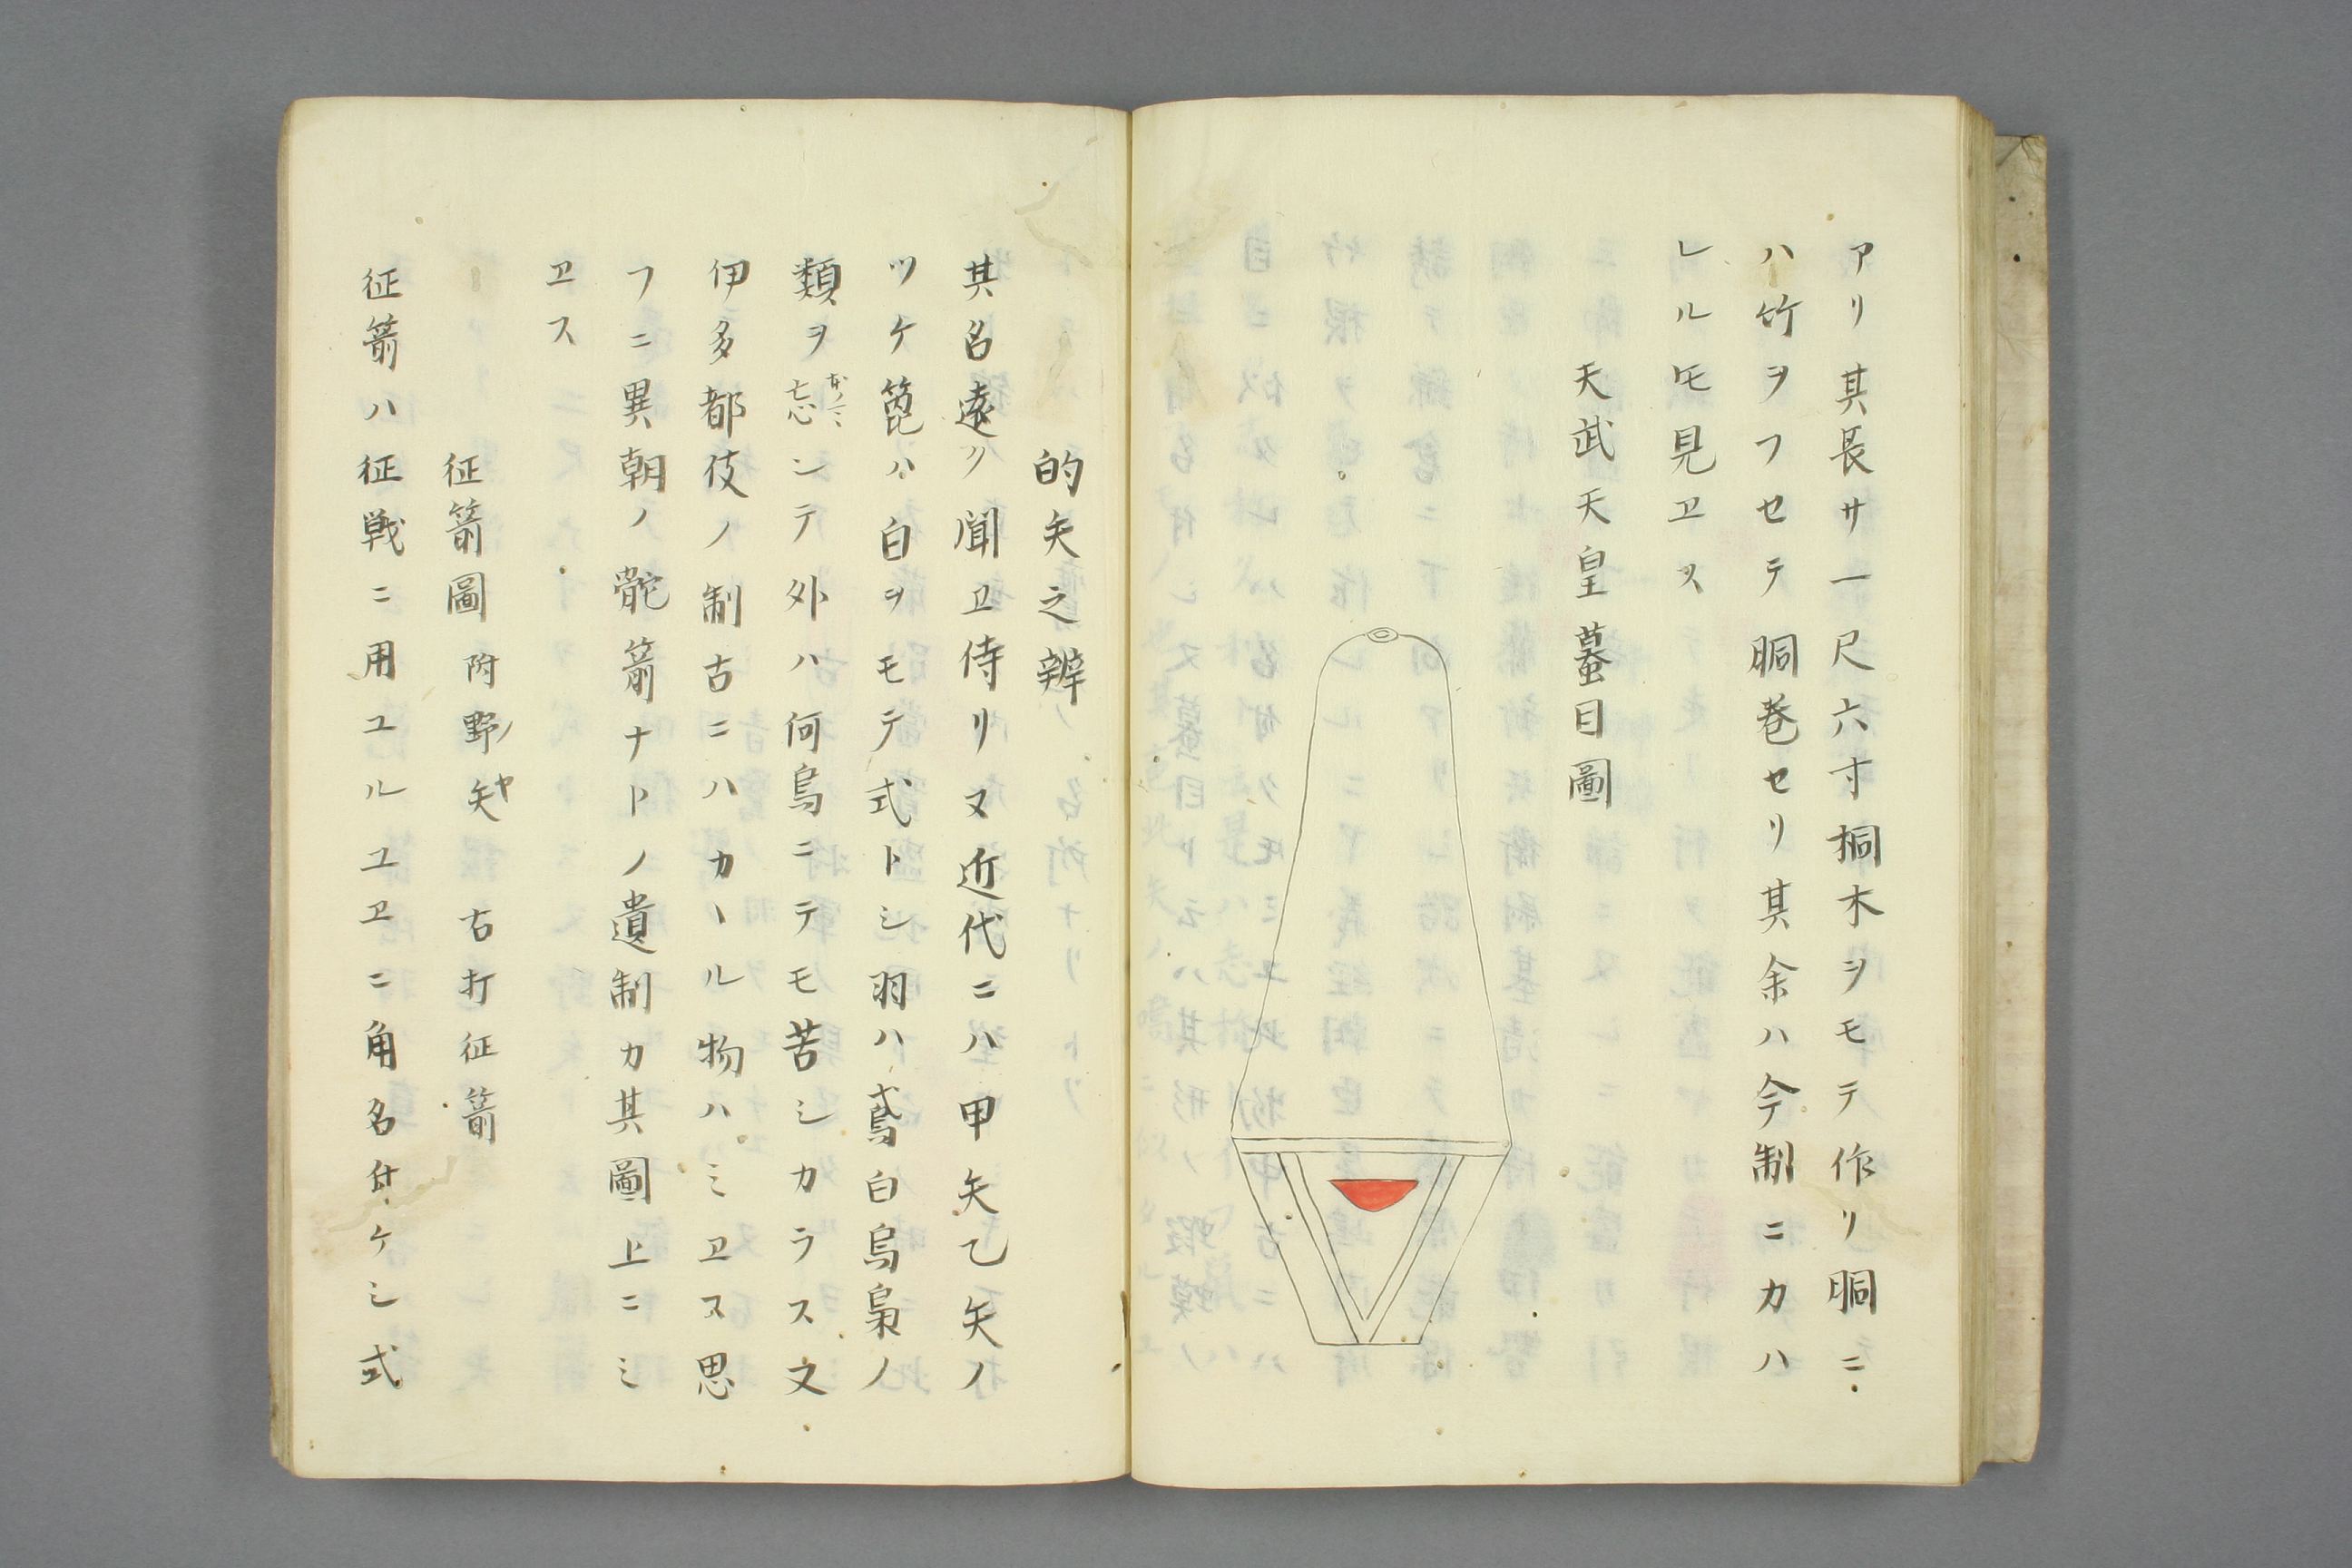 アリ其長サ一尺六寸桐木ヲモテ作リ胴ニ
ハ竹ヲフセテ胴巻セリ其余ハ今制ニカハ
レルモ見ヱス
天武天皇蟇目圖
的矢之辨
其名遠ク聞ヱ侍リヌ近代ニハ甲矢乙矢ノ
ツケ箆ハ白ヲモテ式トシ羽ハ鳶白鳥梟ノ
類ヲ忘ンテ外ハ何鳥ニテモ苦シカラス文
伊多都伎ノ制古ニハカヽル物ハミヱス思
フニ異朝ノ骲箭ナトノ遺制カ其圖上ニシ
ヱス
征箭圖 附野ノ矢ヤ 古打征箭
征箭ハ征戦ニ用ユルユヱニ角名付ケシ式